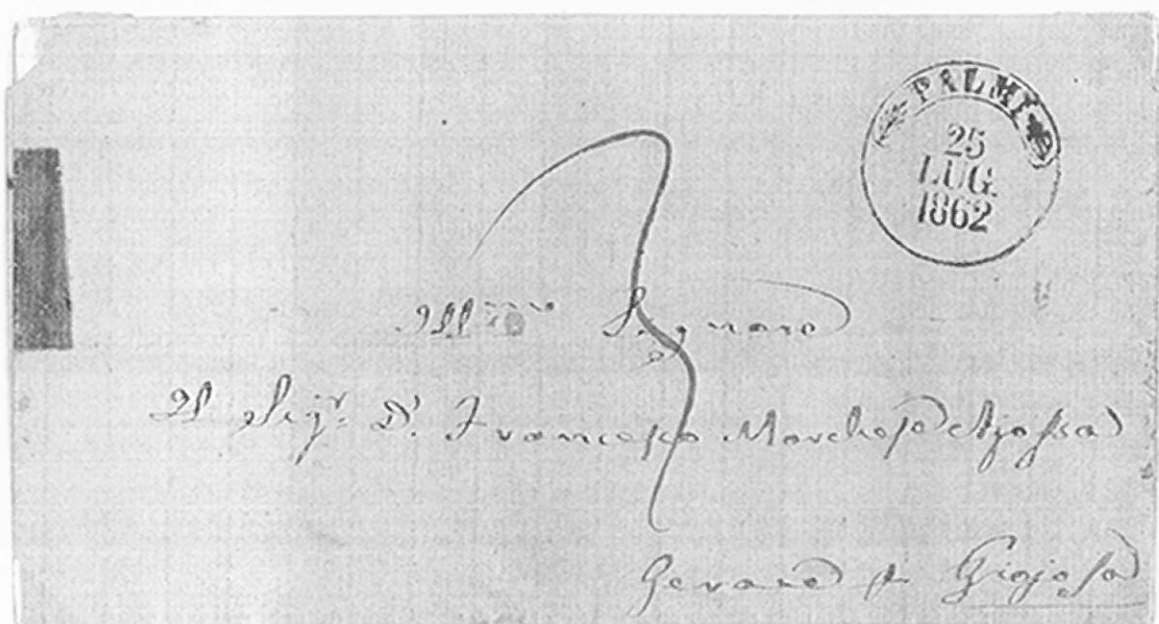 PALMI
25
LUG.
1862
3
Ill.mo Signore
Il Sig.r D. Francesco Marchese Ajossa
Gerace p. Giojosa